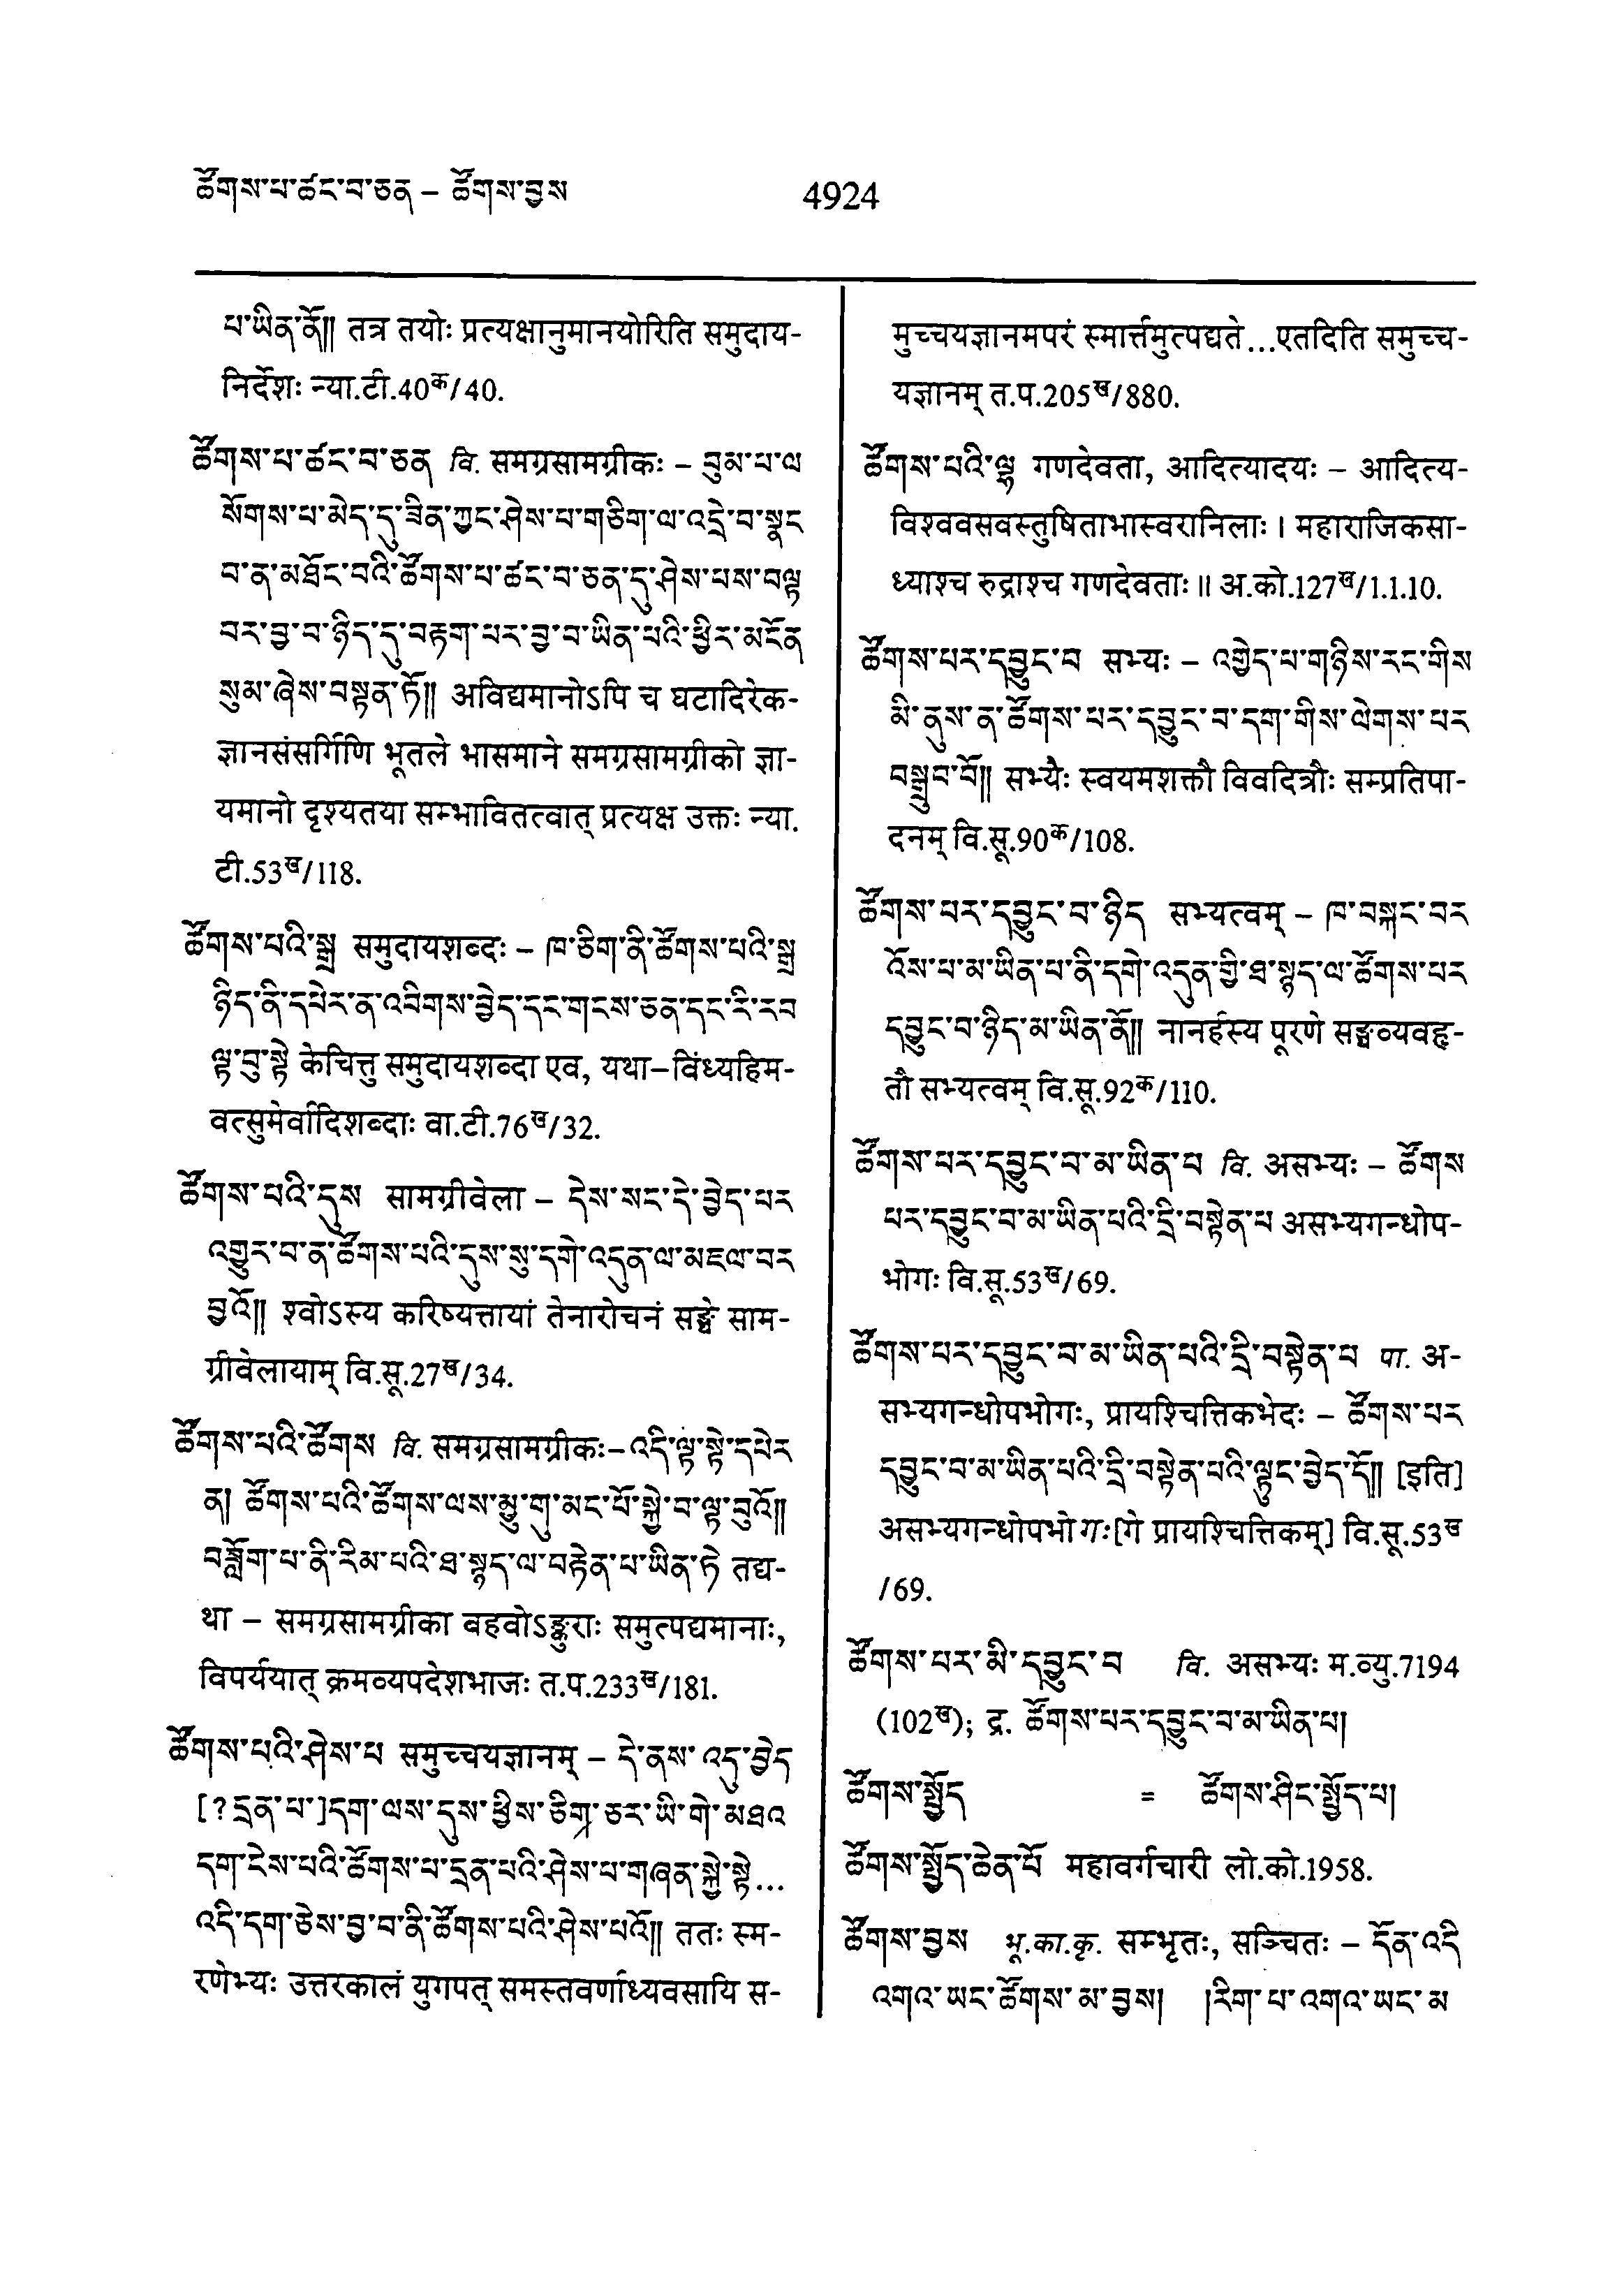 ཚོགས་པ་ཚང་བ་ཅན – ཚོགས་བྱས
4924
པ་ཡིན་ནོ།། तत्र तयोः प्रत्यक्षानुमानयोरिति समुदाय-
निर्देशः न्या.टी.40क/40.
ཚོགས་པ་ཚང་བ་ཅན वि. समग्रसामग्रीकः – བུམ་པ་ལ
སོགས་པ་མེད་དུ་ཟིན་ཀྱང་ཤེས་པ་གཅིག་ལ་འདྲེ་བ་སྣང
བ་ན་མཐོང་བའི་ཚོགས་པ་ཚང་བ་ཅན་དུ་ཤེས་པས་བལྟ
བར་བྱ་བ་ཉིད་དུ་བརྟག་པར་བྱ་བ་ཡིན་པའི་ཕྱིར་མངོན
སུམ་ཞེས་བསྟན་ཏོ།། अविद्यमानोऽपि च घटादिरेक-
ज्ञानसंसर्गिणि भूतले भासमाने समग्रसामग्रीको ज्ञा-
यमानो दृश्यतया सम्भावितत्वात् प्रत्यक्ष उक्तः न्या.
टी.53ख/118.
ཚོགས་པའི་སྒྲ समुदायशब्दः – ཁ་ཅིག་ནི་ཚོགས་པའི་སྒྲ
ཉིད་ནི་དཔེར་ན་འབིགས་བྱེད་དང་གངས་ཅན་དང་རི་རབ
ལྟ་བུ་སྟེ केचित्तु समुदायशब्दा एव, यथा–विंध्यहिम-
वत्सुमेर्वादिशब्दाः वा.टी.76ख/32.
ཚོགས་པའི་དུས सामग्रीवेला – དེས་སང་དེ་བྱེད་པར
འགྱུར་བ་ན་ཚོགས་པའི་དུས་སུ་དགེ་འདུན་ལ་མངལ་བར
བྱའོ།། श्वोऽस्य करिष्यत्तायां तेनारोचनं सङ्घे साम-
ग्रीवेलायाम् वि.सू.27ख/34.
ཚོགས་པའི་ཚོགས वि. समग्रसामग्रीकः–འདི་ལྟ་སྟེ་དཔེར
ན། ཚོགས་པའི་ཚོགས་ལས་མྱུ་གུ་མང་པོ་སྐྱེ་བ་ལྟ་བུའོ།།
བཟློག་པ་ནི་རིམ་པའི་ཐ་སྙད་ལ་བརྟེན་པ་ཡིན་ཏེ तद्य-
था – समग्रसामग्रीका बहवोऽङ्कुराः समुत्पद्यमानाः,
विपर्ययात् क्रमव्यपदेशभाजः त.प.233ख/181.
ཚོགས་པའི་ཤེས་པ समुच्चयज्ञानम् – དེ་ནས་འདུ་བྱེད
[?དྲན་པ་]དག་ལས་དུས་ཕྱིས་ཅིག་ཅར་ཡི་གེ་མཐའ
དག་ངེས་པའི་ཚོགས་པ་དྲན་པའི་ཤེས་པ་གཞན་སྐྱེ་སྟེ...
འདི་དག་ཅེས་བྱ་བ་ནི་ཚོགས་པའི་ཤེས་པའོ།། ततः स्म-
रणेभ्यः उत्तरकालं युगपत् समस्तवर्णाध्यवसायि स-
मुच्चयज्ञानमपरं स्मार्त्तमुत्पद्यते...एतदिति समुच्च-
यज्ञानम् त.प.205ख/880.
ཚོགས་པའི་ལྷ गणदेवता, आदित्यादयः – आदित्य-
विश्ववसवस्तुषिताभास्वरानिलाः । महाराजिकसा-
ध्याश्च रुद्राश्च गणदेवताः ॥ अ.को.127ख/1.1.10.
ཚོགས་པར་དབྱུང་བ सभ्यः – འགྱེད་པ་གཉིས་རང་གིས
མི་ནུས་ན་ཚོགས་པར་དབྱུང་བ་དག་གིས་ལེགས་པར
བསྒྲུབ་བོ།། सभ्यैः स्वयमशक्तौ विवदित्रीः सम्प्रतिपा-
दनम् वि.सू.90क/108.
ཚོགས་པར་དབྱུང་བ་ཉིད सभ्यत्वम् – ཁ་བསྐང་བར
འོས་པ་མ་ཡིན་པ་ནི་དགེ་འདུན་གྱི་ཐ་སྙད་ལ་ཚོགས་པར
དབྱུང་བ་ཉིད་མ་ཡིན་ནོ།། नानर्हस्य पूरणे सङ्घव्यवहृ-
तौ सभ्यत्वम् वि.सू.92क/110.
ཚོགས་པར་དབྱུང་བ་མ་ཡིན་པ वि. असभ्यः – ཚོགས
པར་དབྱུང་བ་མ་ཡིན་པའི་དྲི་བསྟེན་པ असभ्यगन्धोप-
भोगः वि.सू.53ख/69.
ཚོགས་པར་དབྱུང་བ་མ་ཡིན་པའི་དྲི་བསྟེན་པ पा. अ-
सभ्यगन्धोपभोगः, प्रायश्चित्तिकभेदः – ཚོགས་པར
དབྱུང་བ་མ་ཡིན་པའི་དྲི་བསྟེན་པའི་ལྟུང་བྱེད་དོ།། [इति]
असभ्यगन्धोपभोगः[गे प्रायश्चित्तिकम्] वि.सू.53ख
/69.
ཚོགས་པར་མི་དབྱུང་བ वि. असभ्यः म.व्यु.7194
(102ख); द्र. ཚོགས་པར་དབྱུང་བ་མ་ཡིན་པ།
ཚོགས་སྤྱོད = ཚོགས་ཤིང་སྤྱོད་པ།
ཚོགས་སྤྱོད་ཆེན་པོ महावर्गचारी लो.को.1958.
ཚོགས་བྱས भू.का.कृ. सम्भृतः, सञ्चितः – དོན་འདི
འགའ་ཡང་ཚོགས་མ་བྱས། །རིག་པ་འགའ་ཡང་མ